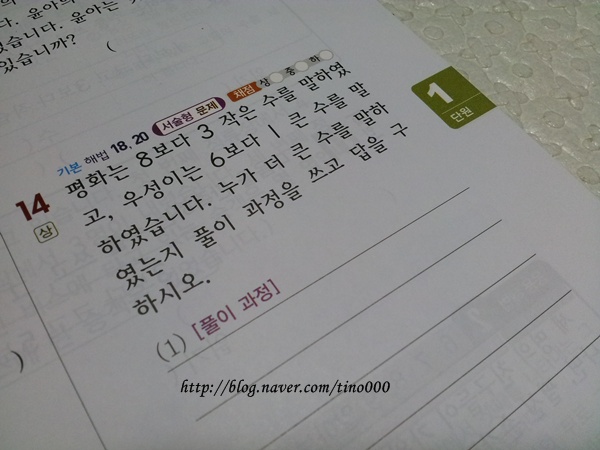 다. 윤아의
었습니다. 윤아는
있습니까? (
기본 해법 18, 20 서술형 문제 채점 상 중 하
14 평화는 8보다 3 작은 수를 말하였
상 고, 우성이는 6보다 1 큰 수를 말
하였습니다. 누가 더 큰 수를 말하
였는지 풀이 과정을 쓰고 답을 구
하시오.
(1) [풀이 과정]
)
1
단원
http://blog.naver.com/tino000